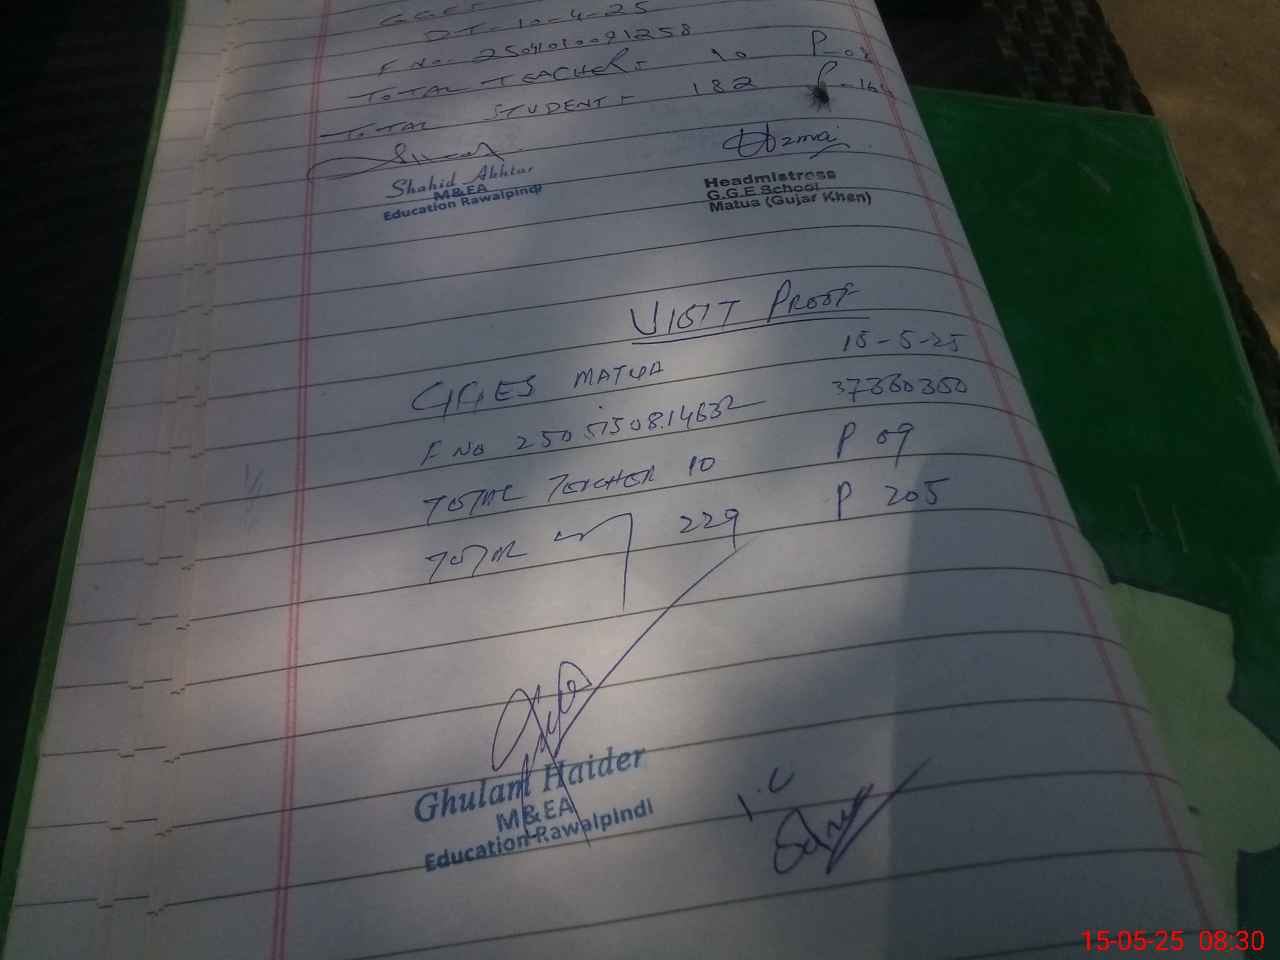 DT- 10-4-25
F No. 2504010091258
TOTAL TEACHERS 10 P-
TOTAL STUDENTS 182 P-
Shahid Akhtar
M&EA
Education Rawalpindi
Uzma
Headmistress
G.G.E School
Matua (Gujar Khen)
VISIT PROOF
GGES MATUA 15-5-25
F NO 2505150814632 37360360
TOTAL TEACHER 10 P 09
TOTAL 229 P 205
Ghulam Haider
M&EA
Education Rawalpindi
I.C
15-05-25 08:30